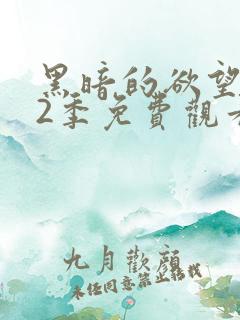 黑暗的欲望
2季免費觀
九月歡顏
未经同意禁止转载